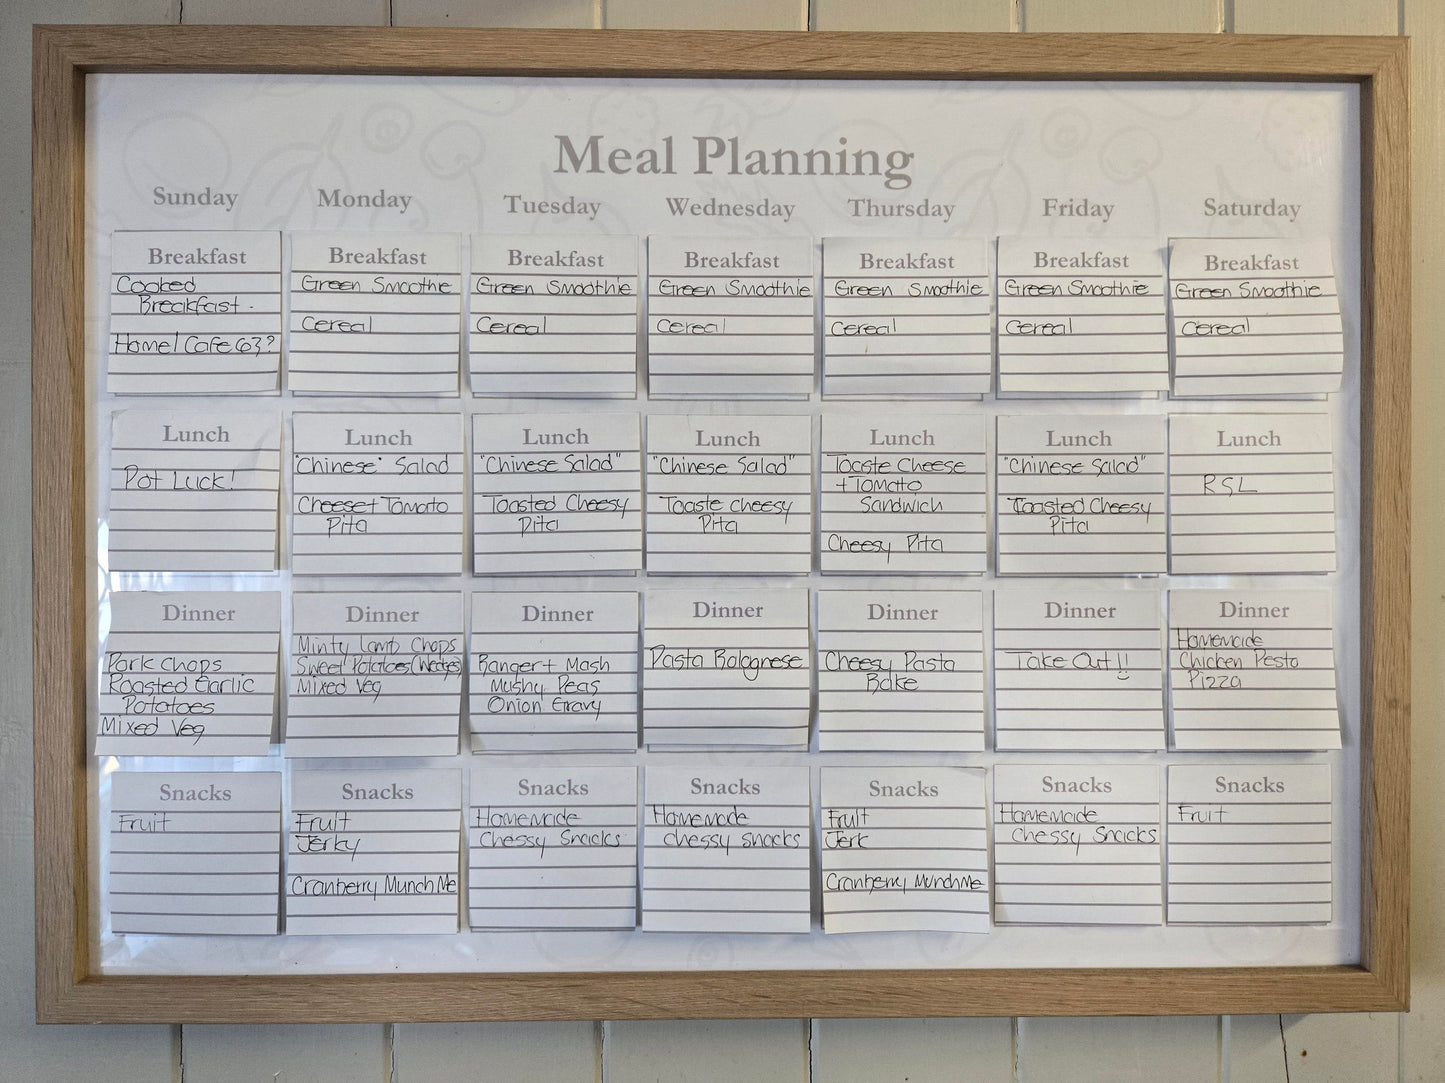 Meal Planning
Sunday
Monday
Tuesday
Wednesday
Thursday
Friday
Saturday
Breakfast
Cooked
Breakfast.
Home/Cafe 63?
Breakfast
Green Smoothie
Cereal
Breakfast
Green Smoothie
Cereal
Breakfast
Green Smoothie
Cereal
Breakfast
Green Smoothie
Cereal
Breakfast
Green Smoothie
Cereal
Breakfast
Green Smoothie
Cereal
Lunch
Pot Luck!
Lunch
"Chinese" Salad
Cheese + Tomato
Pita
Lunch
"Chinese Salad"
Toasted Cheesy
Pita
Lunch
"Chinese Salad"
Toaste cheesy
Pita
Lunch
Toaste Cheese
+ Tomato
Sandwich
Cheesy Pita
Lunch
"Chinese Salad"
Toasted Cheesy
Pita
Lunch
RSL
Dinner
Pork Chops
Roasted Garlic
Potatoes
Mixed Veg
Dinner
Minty Lamb Chops
Sweet Potatoes (Wedges)
Mixed Veg
Dinner
Banger + Mash
Mushy Peas
Onion Gravy
Dinner
Pasta Bolognese
Dinner
Cheesy Pasta
Bake
Dinner
Take Out!!
Dinner
Homemade
Chicken Pesto
Pizza
Snacks
Fruit
Snacks
Fruit
Jerky
Cranberry Munch Me
Snacks
Homemade
Chessy Snacks
Snacks
Homemade
chessy snacks
Snacks
Fruit
Jerk
Cranberry Munch Me
Snacks
Homemade
Chessy Snacks
Snacks
Fruit